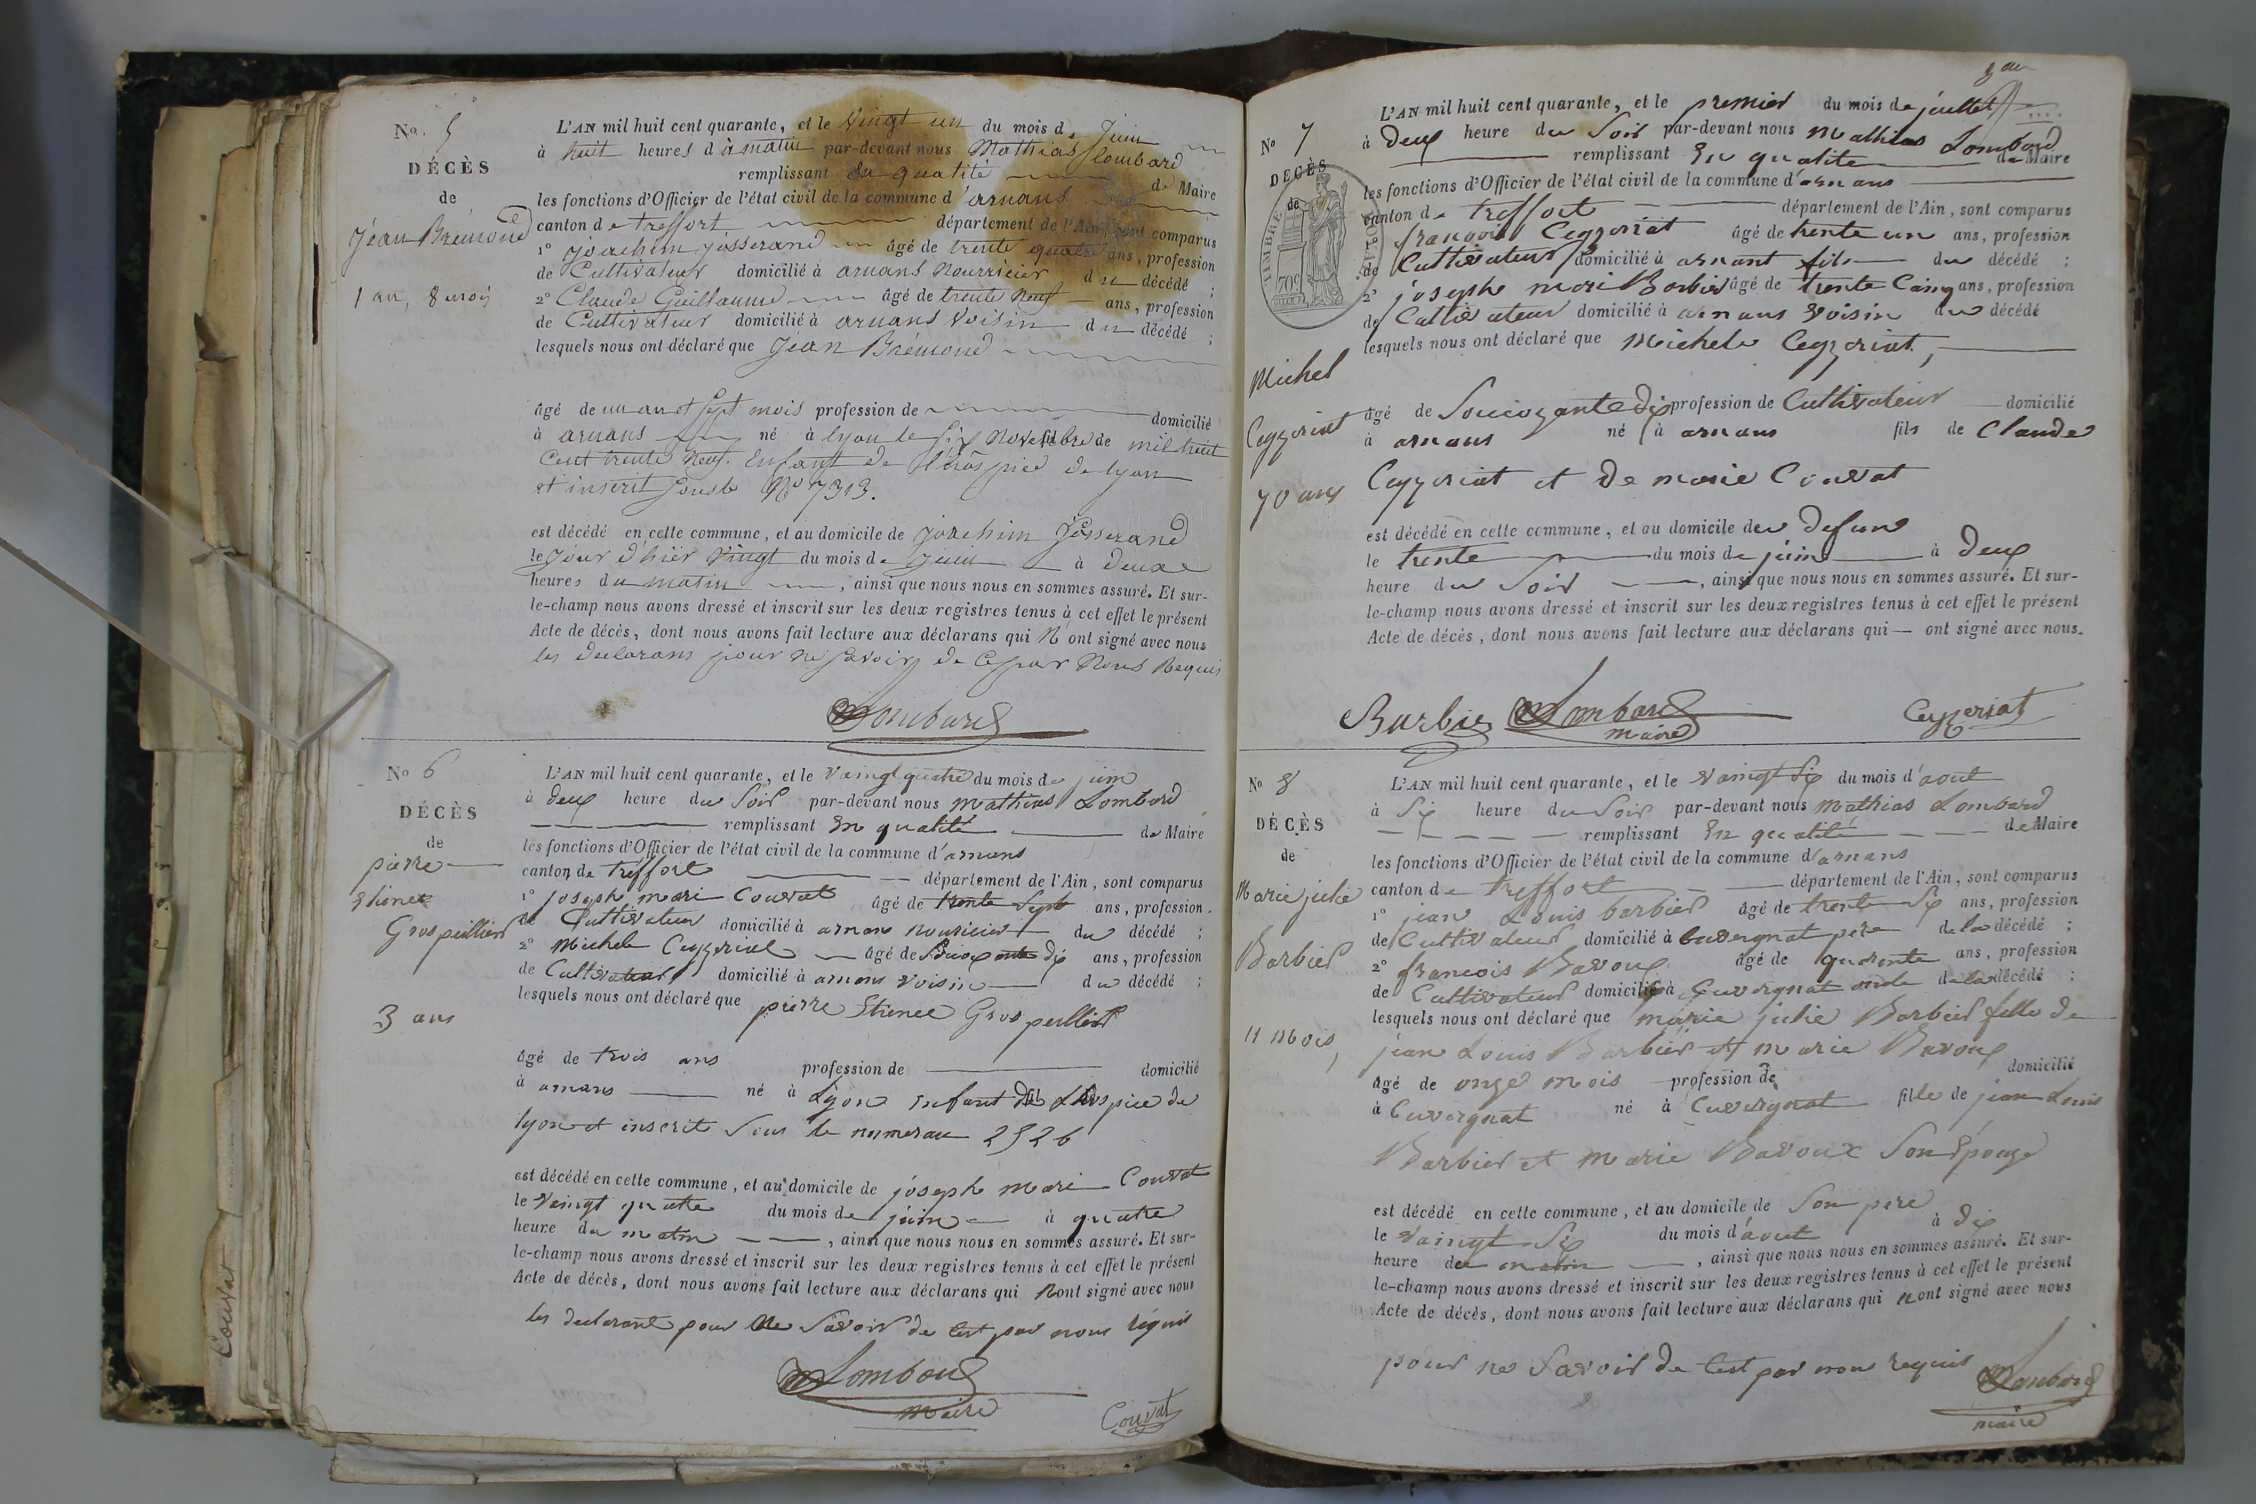 No. 5
DÉCÈS
de
Jean Brémond
1 an, 8 mois
L'AN mil huit cent quarante, et le Vingt un du mois de Juin
à huit heures du matin par-devant nous Mathias Lombard
remplissant En qualité de Maire
les fonctions d'Officier de l'état civil de la commune d'arnans
canton de treffort département de l'Ain, sont comparus
1° Joachim Josserand âgé de trente quatre ans, profession
de Cultivateur domicilié à arnans Nourricier du décédé ;
2° Claude Guillaume âgé de trente Neuf ans, profession
de Cultivateur domicilié à arnans Voisin du décédé ;
lesquels nous ont déclaré que Jean Brémond
âgé de un an et Sept mois profession de domicilié
à arnans né à lyon le Six Novembre de mil huit
Cent trente Neuf. Enfant de l'hospice de lyon
et inscrit sous le No 7313.
est décédé en cette commune, et au domicile de Joachim Josserand
le Jour d'hier Vingt du mois de Juin à deux
heures du matin , ainsi que nous nous en sommes assuré. Et sur-
le-champ nous avons dressé et inscrit sur les deux registres tenus à cet effet le présent
Acte de décès, dont nous avons fait lecture aux déclarans qui N'ont signé avec nous
les declarans pour ne Savoir de Ce par Nous Requis
Lombard
No 6
DÉCÈS
de
pierre
Etienee
Grospeillier
3 ans
L'AN mil huit cent quarante, et le vaingt quatre du mois de juin
à deux heure du Soir par-devant nous Mathias Lombard
remplissant En qualité de Maire
les fonctions d'Officier de l'état civil de la commune d'arnans
canton de treffort département de l'Ain, sont comparus
1° joseph mari Couvat âgé de trente Sept ans, profession
de Cultivateur domicilié à arnans nouricier du décédé ;
2° Michel Ceyzeriat âgé de Soixante dix ans, profession
de Cultivateur domicilié à arnans voisin du décédé ;
lesquels nous ont déclaré que pierre Etienee Grospeillier
âgé de trois ans profession de domicilié
à arnans né à Lyon enfant de L'hospice de
lyon et inscrit Sous le numerau 2526
est décédé en cette commune, et au domicile de joseph mari Couvat
le vaingt quatre du mois de juin à quatre
heure du matin , ainsi que nous nous en sommes assuré. Et sur-
le-champ nous avons dressé et inscrit sur les deux registres tenus à cet effet le présent
Acte de décès, dont nous avons fait lecture aux déclarans qui N'ont signé avec nous
les declarant pour Ne Savoir de Cest par nous requis
Lombard
maire
Couvat
No 7
DÉCÈS
de
TIMBRE ROYAL
70c
Michel
Ceyzeriat
70 ans
L'AN mil huit cent quarante, et le premier du mois de juillet
à deux heure du Soir par-devant nous Mathias Lombard
remplissant En qualité de Maire
les fonctions d'Officier de l'état civil de la commune d'arnans
canton de treffort département de l'Ain, sont comparus
françois Ceyzeriat âgé de trente un ans, profession
de Cultivateur domicilié à arnant fils du décédé ;
2° joseph mari Barbier âgé de trente Cainq ans, profession
de Cultivateur domicilié à arnans voisin du décédé
lesquels nous ont déclaré que Michele Ceyzeriat,
âgé de Soicozante dix profession de Cultivateur domicilié
à arnans né à arnans fils de Claude
Ceyzeriat et de marie Couvat
est décédé en cette commune, et au domicile deu defun
le trente du mois de juin à deux
heure du Soir , ainsi que nous nous en sommes assuré. Et sur-
le-champ nous avons dressé et inscrit sur les deux registres tenus à cet effet le présent
Acte de décès, dont nous avons fait lecture aux déclarans qui — ont signé avec nous.
Barbier Lombard Ceyzeriat
maire
No 8
DÉCÈS
de
Marie julie
Barbier
11 Mois,
L'AN mil huit cent quarante, et le vaingt Six du mois d'aout
à Six heure du Soir par-devant nous Mathias Lombard
remplissant En qualité de Maire
les fonctions d'Officier de l'état civil de la commune d'arnans
canton de treffort département de l'Ain, sont comparus
1° jean Louis barbier âgé de trente Six ans, profession
de Cultivateur domicilié à Cuvergnat pere de la décédé ;
2° francois Bavoux âgé de quarente ans, profession
de Cultivateur domicilié à Cuvergnat oncle de la décédé ;
lesquels nous ont déclaré que marie julie Barbier fille de
jean Louis Barbier et marie Bavoux
âgé de onze mois profession de domicilié
à Cuvergnat né à Cuvergnat fille de jean Louis
Barbier et marie Bavoux Son Epouze
est décédé en cette commune, et au domicile de Son pere
le vaingt Six du mois d'aout à dix
heure du matin , ainsi que nous nous en sommes assuré. Et sur-
le-champ nous avons dressé et inscrit sur les deux registres tenus à cet effet le présent
Acte de décès, dont nous avons fait lecture aux déclarans qui N'ont signé avec nous
pour ne Savoir de Cest par nou requis
Lombard
maire
Couvat